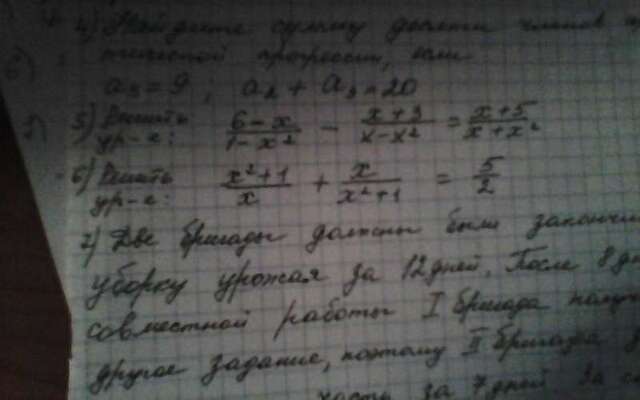 4) Найдите сумму десяти членов
прогрессии, если
a₃ = 9 ; a₂ + a₉ = 20
5) Решить ур-е: (6 - x)/(1 - x²) - (x + 3)/(x - x²) = (x + 5)/(x + x²)
6) Решить ур-е: (x² + 1)/x + x/(x² + 1) = 5/2
7) Две бригады должны были
уборку урожая за 12 дней. После 8
совместной работы I бригада
другое задание, поэтому II бригада
часть за 7 дней. За